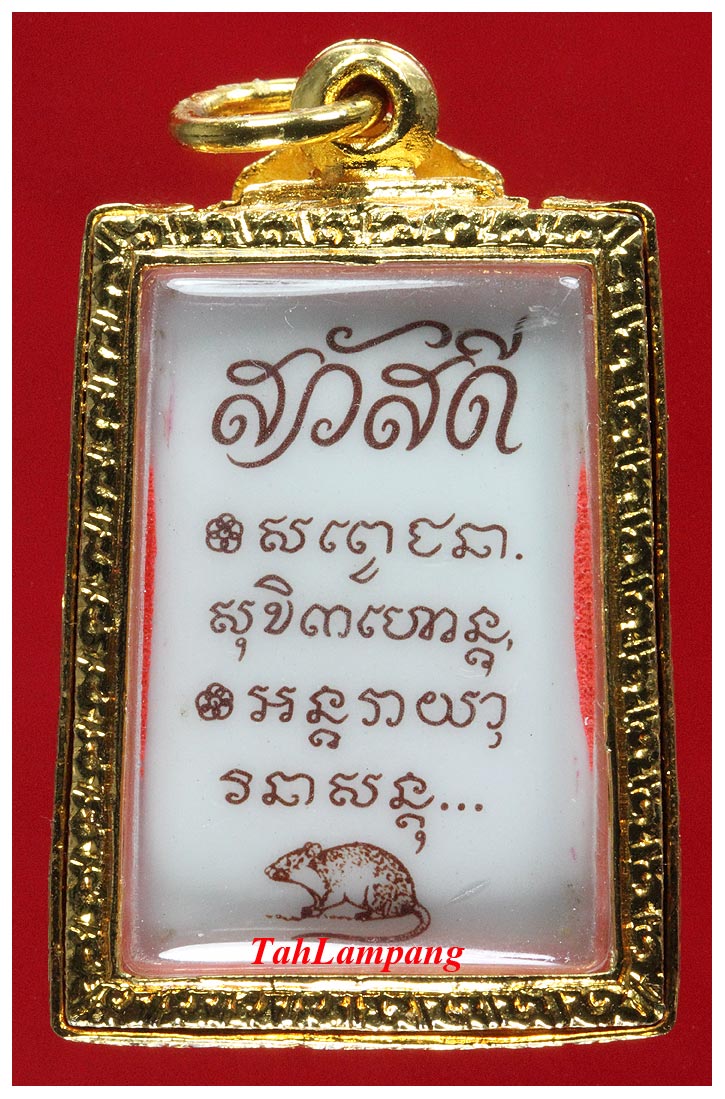 สวัสดี
សព្វេជនា.
សុខិតាហោន្តុ
អន្តរាយា
វនាសន្តុ...
TahLampang